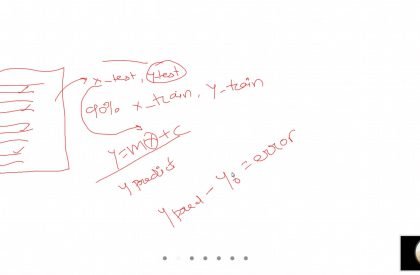 x_test, y_test
90% x_train, y_train
y=mx+c
y predict
y pred - yi = error